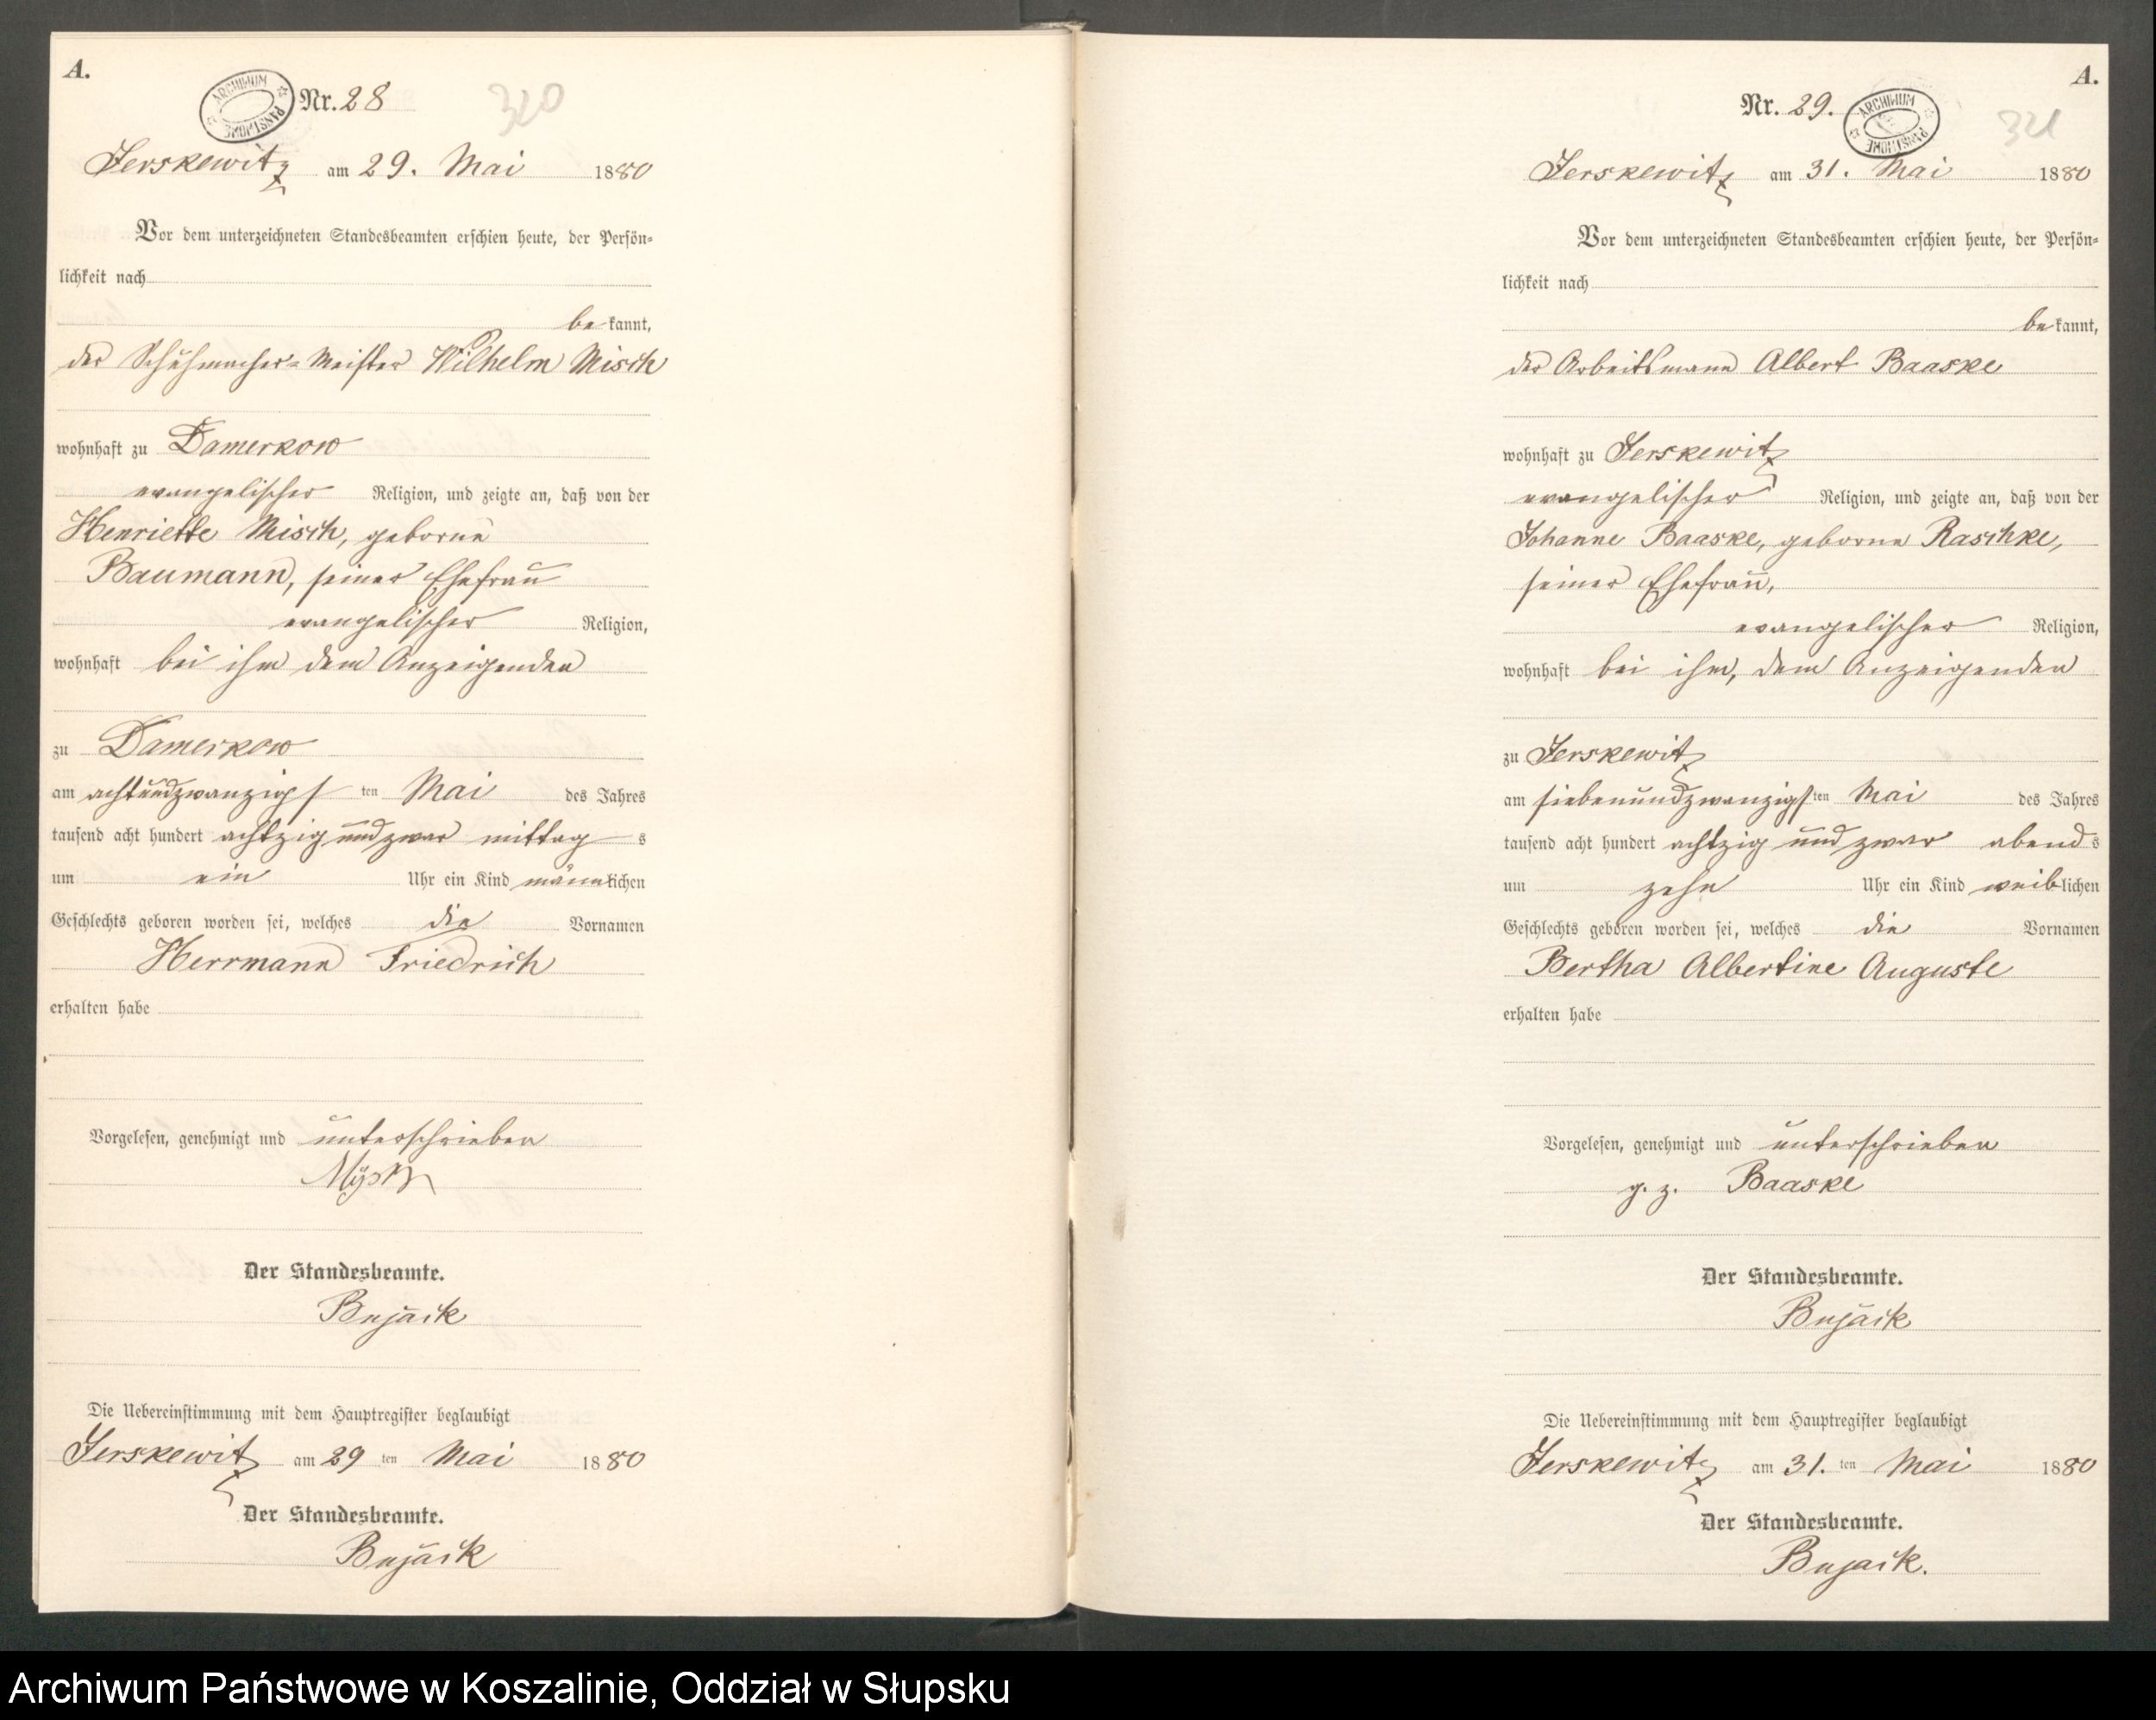 A.
ARCHIWUM PAŃSTWOWE
Nr. 28
320
Jerskewitz am 29. Mai 1880
Vor dem unterzeichneten Standesbeamten erschien heute, der Persön-
lichkeit nach
be kannt,
der Schuhmacher-Meister Wilhelm Misch
wohnhaft zu Damerkow
evangelischer Religion, und zeigte an, daß von der
Henriette Misch, geborne
Baumann, seiner Ehefrau
evangelischer Religion,
wohnhaft bei ihm dem Anzeigenden
zu Damerkow
am achtundzwanzigs ten Mai des Jahres
tausend acht hundert achtzig und zwar mittag s
um ein Uhr ein Kind männlichen
Geschlechts geboren worden sei, welches die Vornamen
Herrmann Friedrich
erhalten habe
Vorgelesen, genehmigt und unterschrieben
Der Standesbeamte.
Bujack
Die Uebereinstimmung mit dem Hauptregister beglaubigt
Jerskewitz am 29 ten Mai 1880
Der Standesbeamte.
Bujack
A.
Nr. 29.
ARCHIWUM PAŃSTWOWE
321
Jerskewitz am 31. Mai 1880
Vor dem unterzeichneten Standesbeamten erschien heute, der Persön-
lichkeit nach
be kannt,
der Arbeitsmann Albert Baaske
wohnhaft zu Jerskewitz
evangelischer Religion, und zeigte an, daß von der
Johanne Baaske, geborne Raschke,
seiner Ehefrau,
evangelischer Religion,
wohnhaft bei ihm, dem Anzeigenden
zu Jerskewitz
am siebenundzwanzigs ten Mai des Jahres
tausend acht hundert achtzig und zwar abend s
um zehn Uhr ein Kind weiblichen
Geschlechts geboren worden sei, welches die Vornamen
Bertha Albertine Auguste
erhalten habe
Vorgelesen, genehmigt und unterschrieben
g. z. Baaske
Der Standesbeamte.
Bujack
Die Uebereinstimmung mit dem Hauptregister beglaubigt
Jerskewitz am 31. ten Mai 1880
Der Standesbeamte.
Bujack.
Archiwum Państwowe w Koszalinie, Oddział w Słupsku